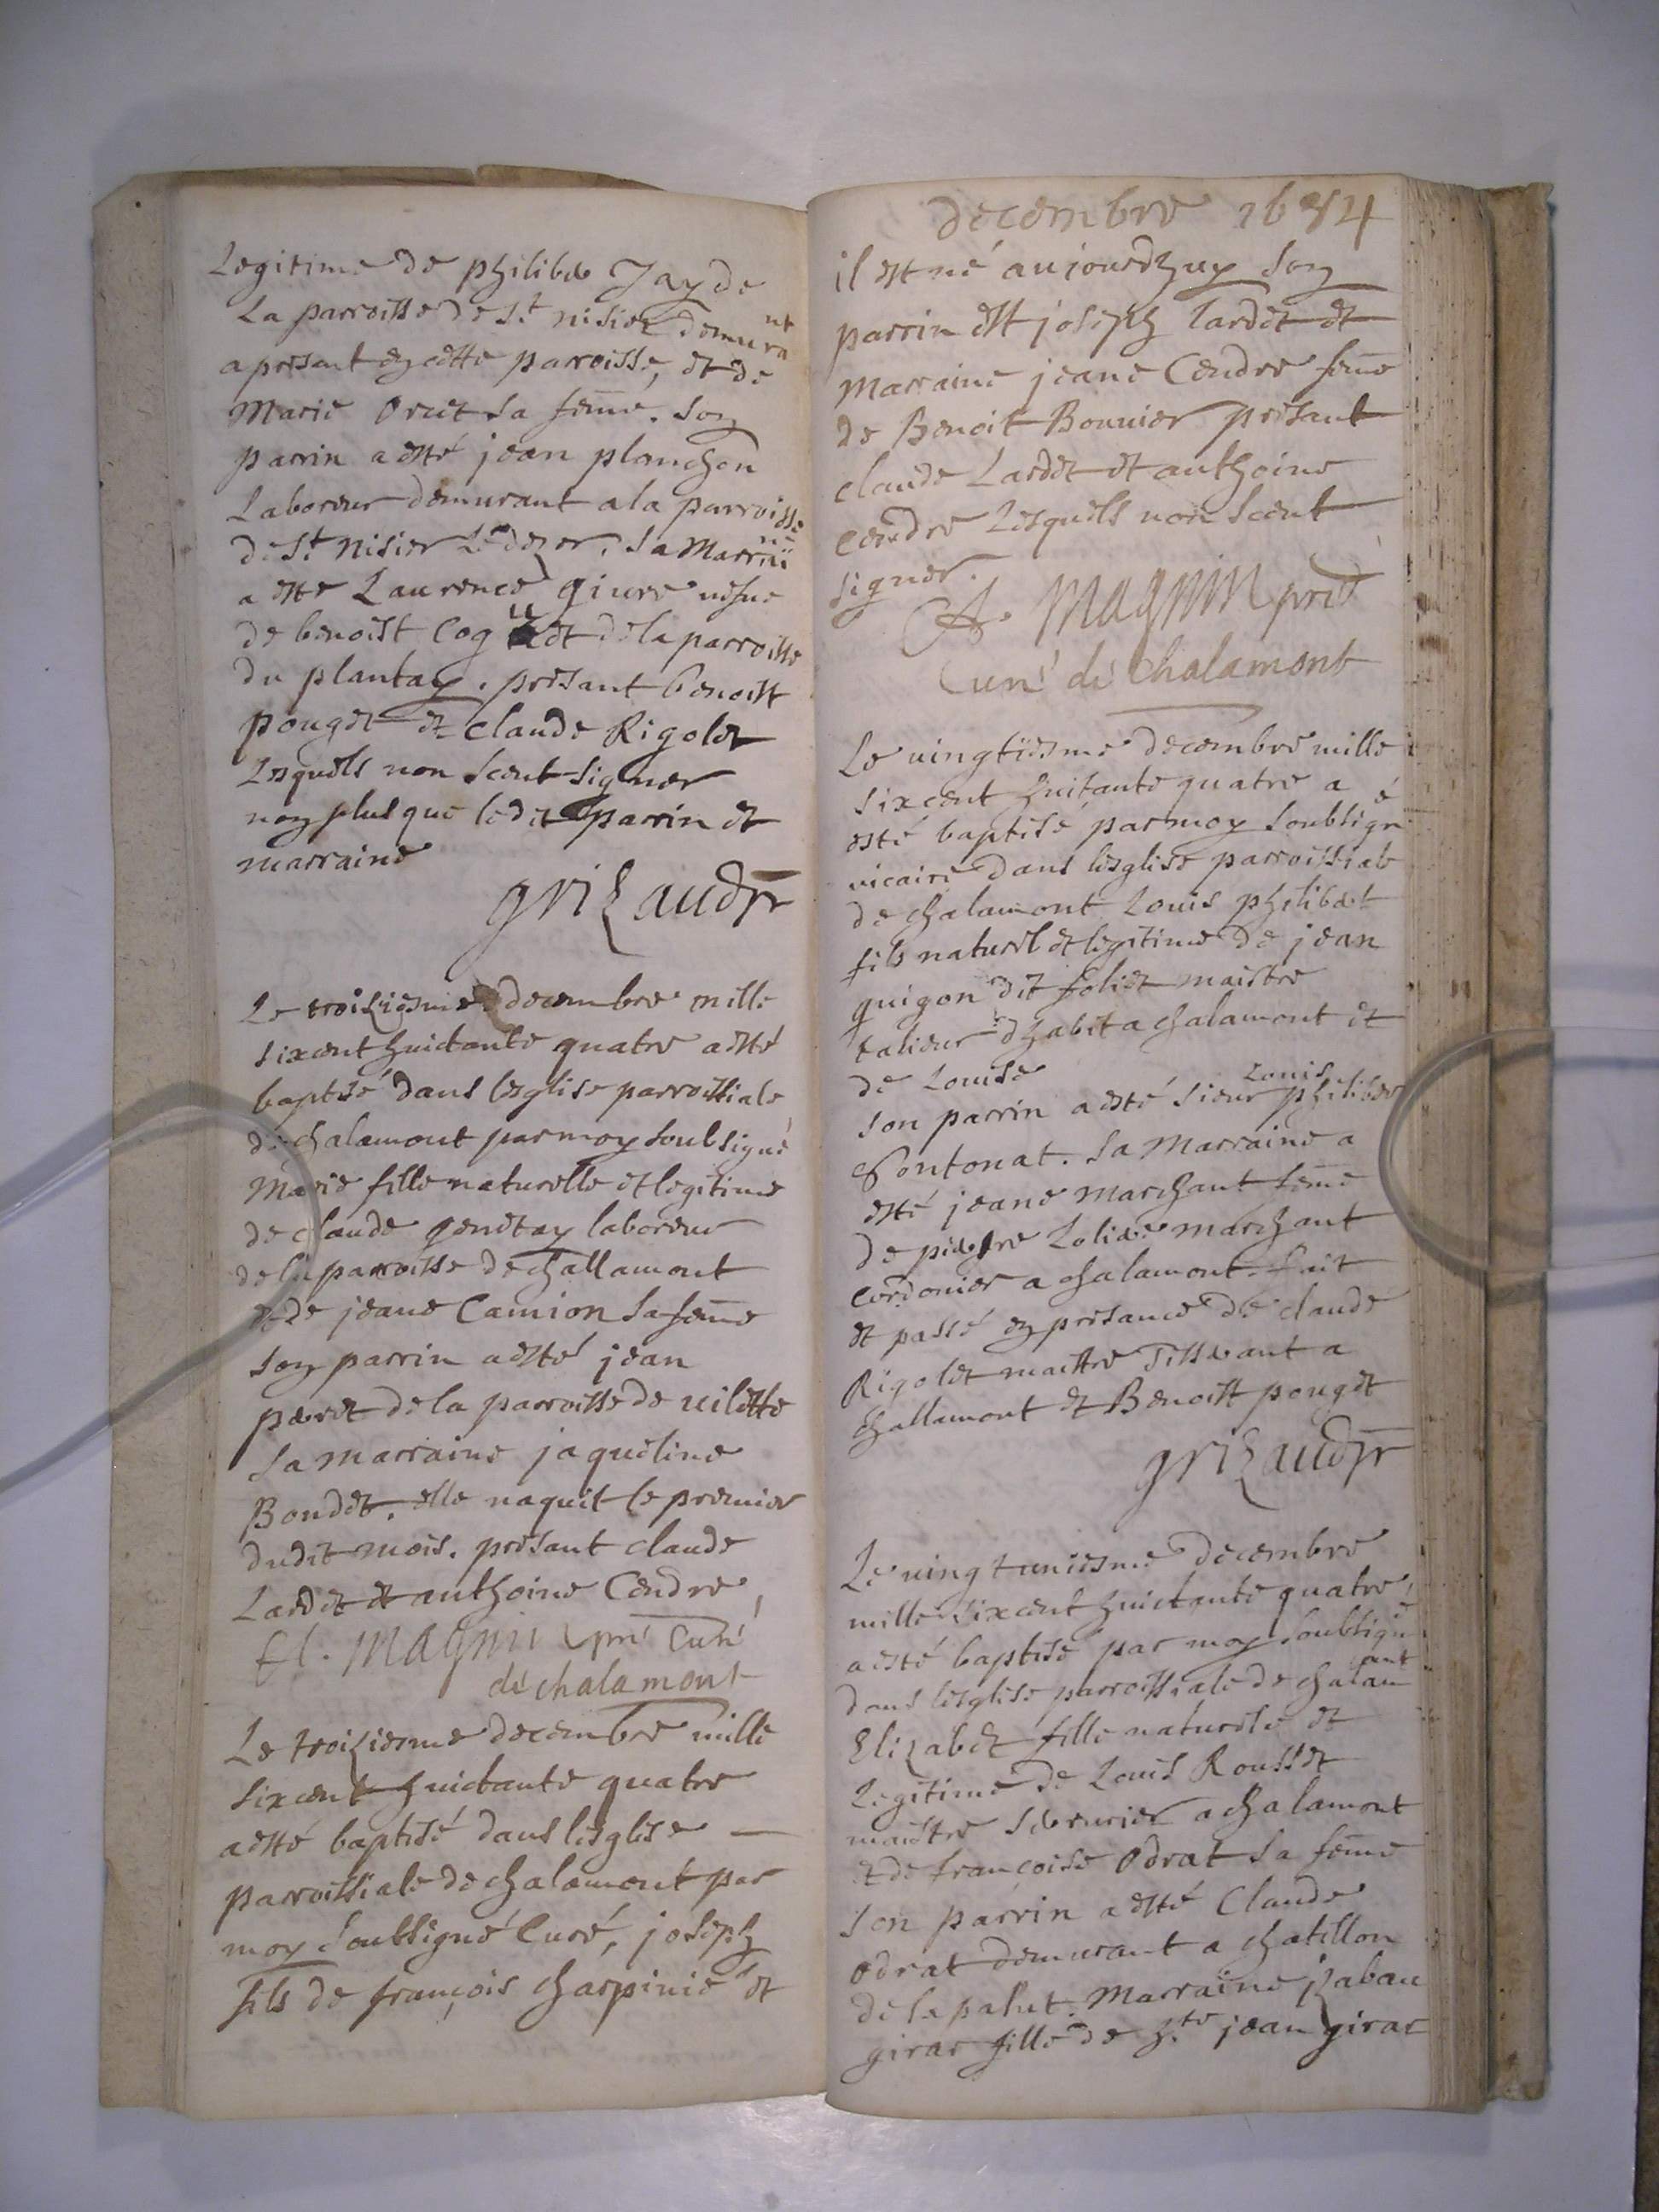 Legitime de philiber Jay de
La parroisse de St nisier demurant
a present en cette parroisse, et de
Marie Oret sa feme. Son
parrin a esté jean planchon
Laboreur demurant a la parroisse
de St Nisier Le dezer. Sa Marrine
a este Laurence giure uesue
de benoist Coguet de la parroisse
du plantay. présant benoist
pouget et claude Rigolet
Lesquels non scent signer
non plus que ledit parrin et
marraine
grizaud pr
Le troiziesme decembre mille
sixcent huictante quatre a esté
baptisé dans lesglise parroissiale
de chalamont par moy soubsigné
Marie fille naturelle et legitime
de claude genetay laboreur
de la parroisse de challamont
et de jeane Camion sa feme
son parrin a esté jean
peret de la parroisse de uilette
sa marraine jaqueline
Boudet. elle naquit le premier
dudit mois. présant claude
Lardet et anthoine Cendre,
Magnin pré Curé
de chalamont
Le troizieme decembre mille
sixcent huictante quatre
a esté baptisé dans lesglise
parroissiale de chalamont par
moy soubsigné Curé, joseph
fils de françois charpinié et
decembre 1684
il est né aujourdhuy son
parrin est joseph lardet et
marraine jeane Cendre feme
de Benoit Bouuier présant
claude Lardet et anthoine
cendre Lesquels non scent
signer.
Magnin pre
Curé de Chalamont
Le uingtiesme decembre mille
sixcent huitante quatre a
esté baptisé par moy soubsigné
uicaire dans lesglise parroissiale
de chalamont Louis philibert
fils naturel et legitime de jean
guigon dit foliet maistre
talieur dhabit a chalamont et
de Louise
son parrin a esté sieur Louis philiber
Pontonat. sa Marraine a
esté jeane marchant feme
de pierre Loliée marchant
cordonier a chalamont. fait
et passé en présance de claude
Rigolet maistre Tisserant a
challamont et Benoist pouget
grizaud pr
Le uingtuniesme decembre
mille sixcent huictante quatre,
a esté baptisé par moy soubsigné
dans lesglise parroissiale de chalamont
Elizabet fille naturele et
Legitime de Louis Rousset
maistre serrurier a chalamont
et de françoise Odrat sa feme
son parrin a esté Claude
Odrat demurant a chatillon
de la palut. Marraine jzabau
girar fille de jean girar